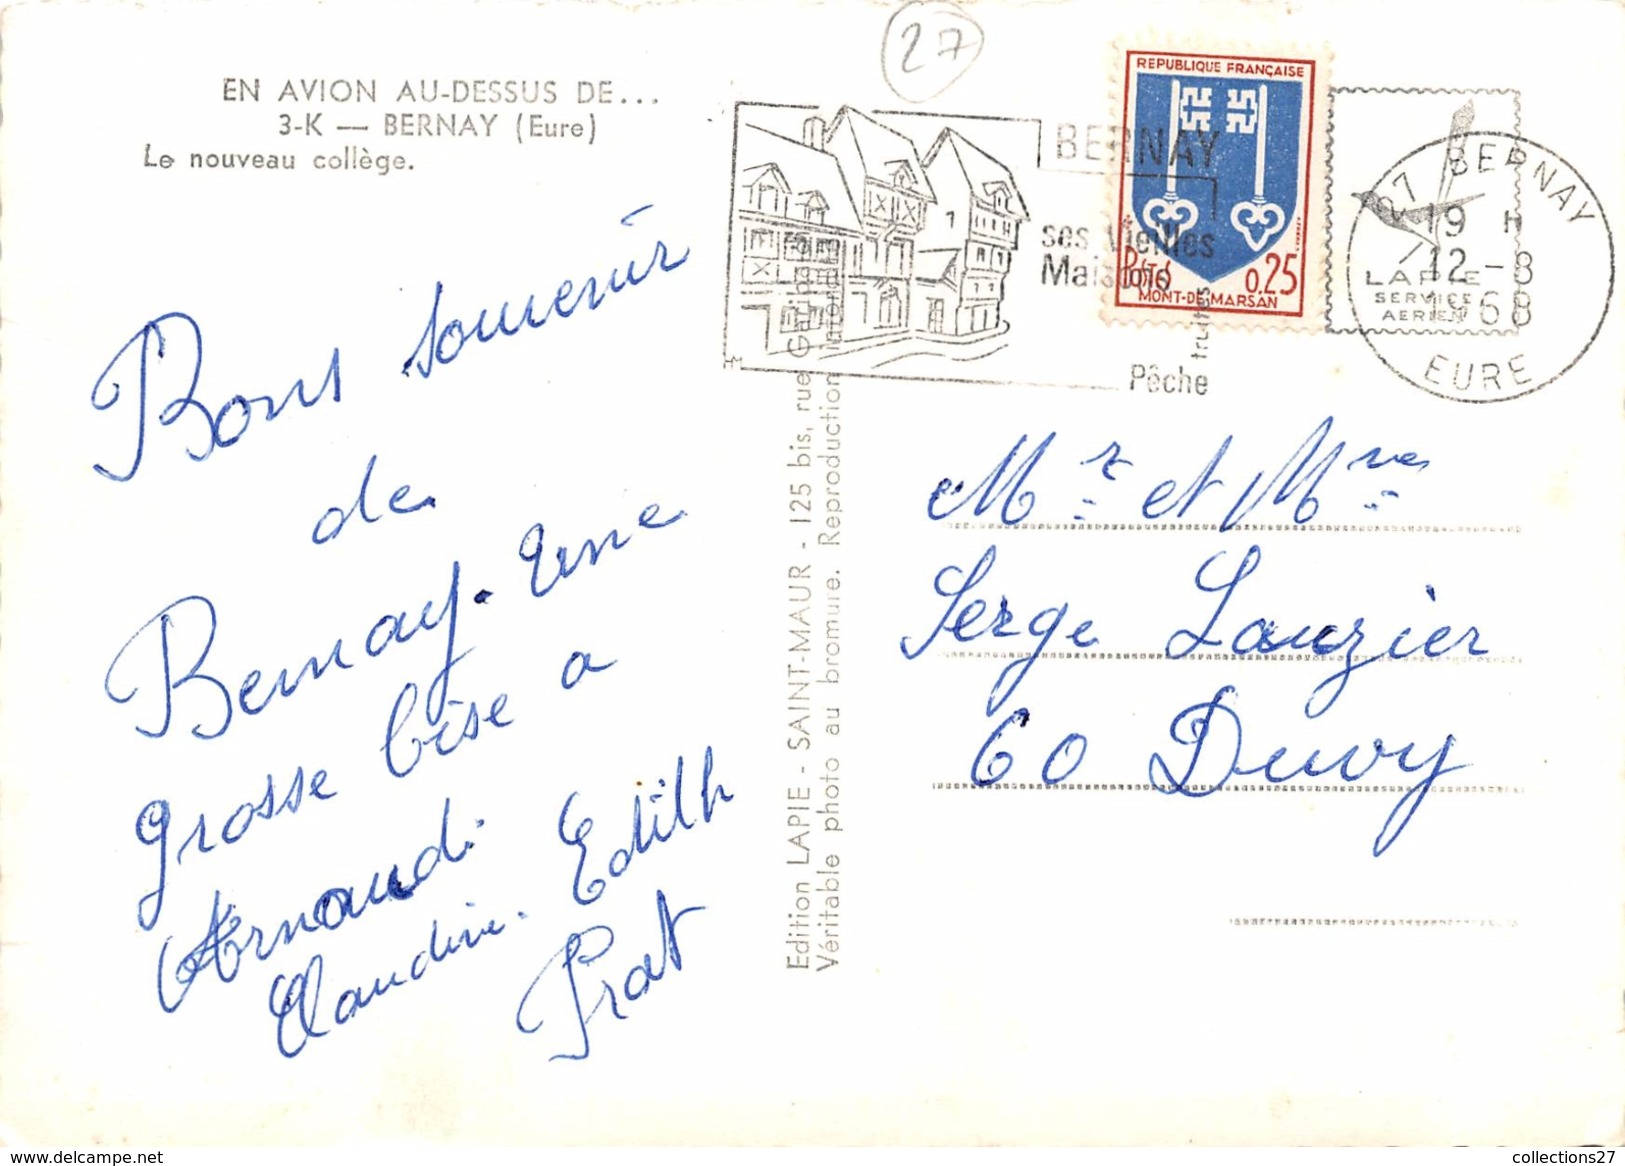 27
EN AVION AU-DESSUS DE...
3-K — BERNAY (Eure)
Le nouveau collège.
BERNAY
ses Vieilles
Maisons
Pêche
truites
REPUBLIQUE FRANÇAISE
0,25
MONT-DE-MARSAN
27 BERNAY
9 H
12 - 8
1968
EURE
LAPIE
SERVICE
AERIEN
Bons souvenir
de
Bernay.
Grosse bise a
Arnaud.
Claudine. Edith
Prat
Edition LAPIE - SAINT-MAUR - 125 bis, rue
Véritable photo au bromure. Reproduction interdite
Mr et Mme
Serge Lauzier
60 Duvy
collections27